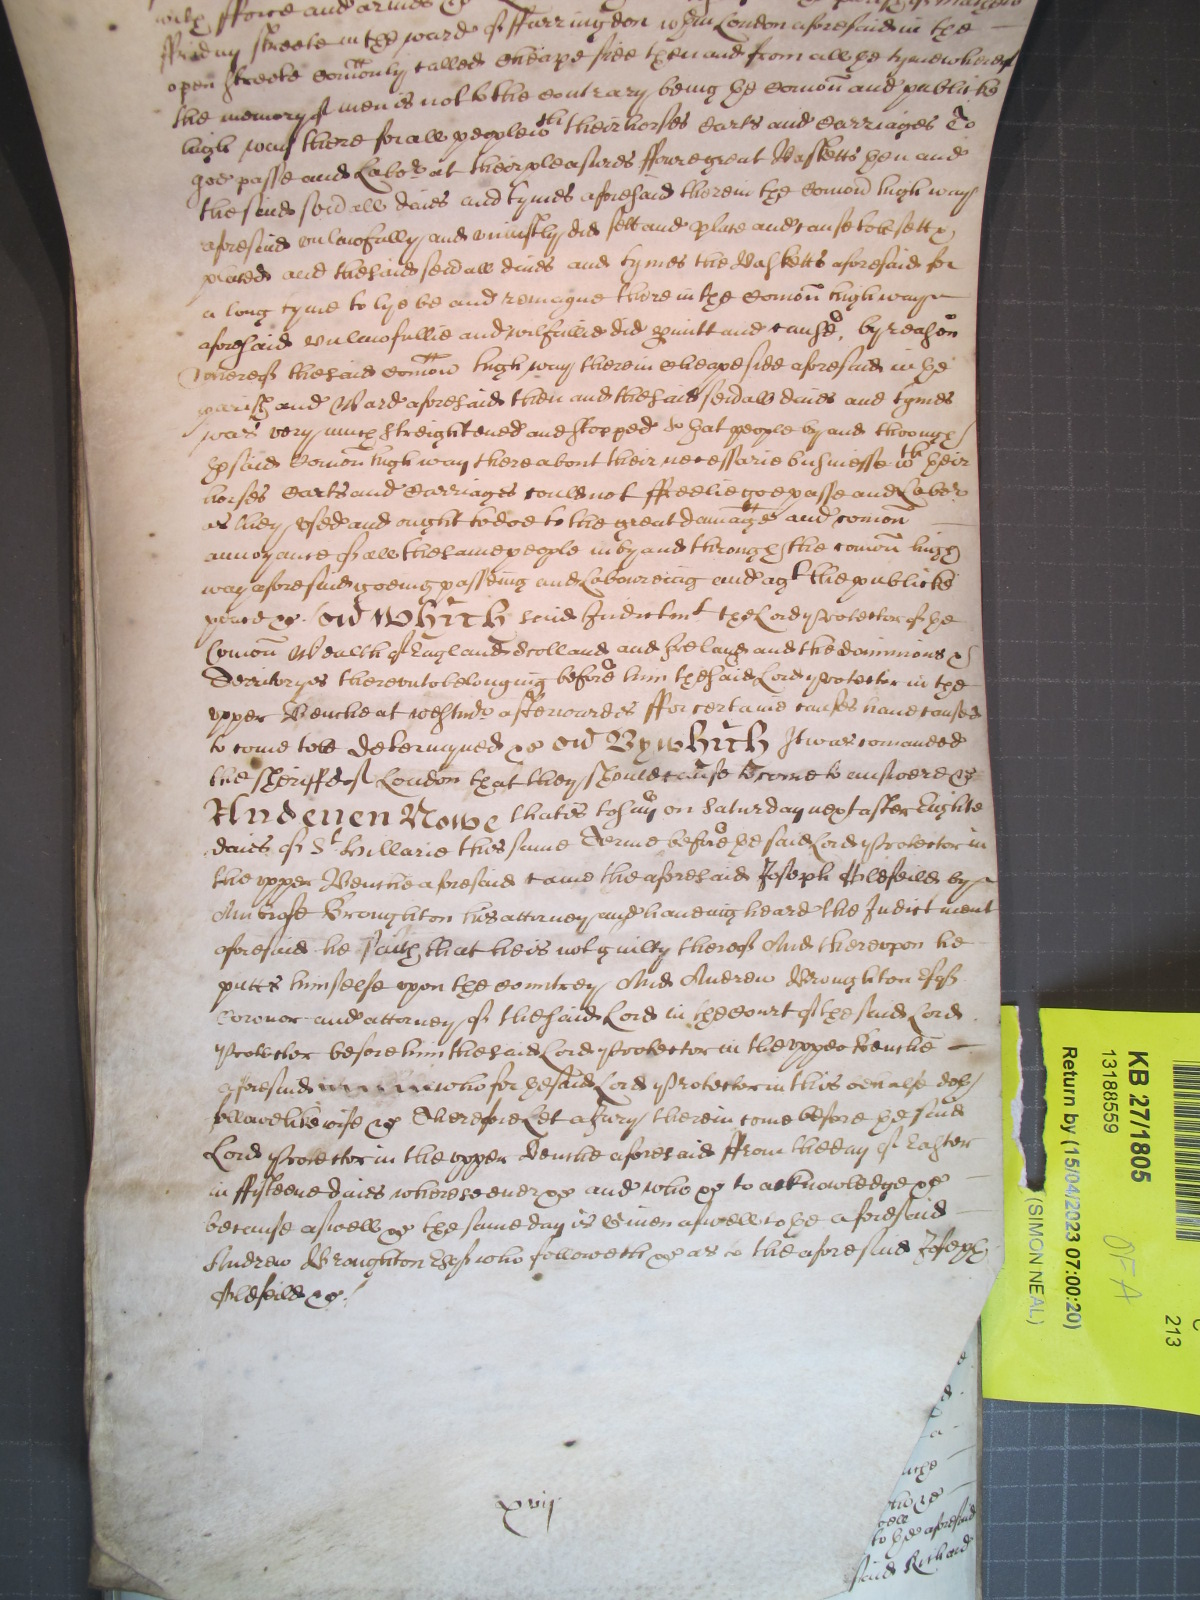 with fforce and armes &c
ffriday streete in the ward of ffarringdon w^{th}in London aforesaid in the
open streete Com̄only called Cheape side then and from all the tyme whereof
the memory of men is not to the contrary being the Com̄on and publicke
high way there for all people w^{th} their horses Carts and Carriages To
goe passe and Labo^r at their pleasures ffoure great Basketts then and
the said sev̄all daies and tymes aforesaid therein the Com̄on high way
aforesaid vnlawfully and vniustly did sett and place and cause to be sett &
placed and the said sev̄all daies and tymes the Baskетts aforesaid for
a long tyme to lye be and remayne there in the Com̄on high way
aforesaid vnlawfullie and wilfullie did p̱mitt and cause, by reason
Whereof the said Com̄on high way therein Cheapeside aforesaid in the
parish and Ward aforesaid then and the said sev̄all daies and tymes
was very much streightened and stopped so that people by and through
the said Com̄on high way there about their necessarie businesse w^{th} their
horses Carts and Carriages could not ffreelie goe passe and Labo^r
as they vsed and ought to doe to the great damage and com̄on
annoyance of all the same people in by and through the com̄on high
way aforesaid goeing passeing and Laboureing and ag^t the publicke
peace &c. Ōd Which said Indictm^t the Lord Protector of the
Com̄on Wealth of England Scotland and Ireland and the dominions &
Territoryes therevnto belonging before him the said Lord Protector in the
vpper Benche at Westm̄ afterwardes ffor certaine causes have caused
to come to be determyned &c Ōd By which It was comanded
the Sheriffe of London that they should cause to come to answere &c
And euen Nowe that is to say on Saturday next after Eighte
daies of S^t Hillarie this same Terme before the said Lord Protector in
the vpper Benche aforesaid came the aforesaid Joseph Alefeild by
Ambrose Broughton his attorney and haueing heard the Indictment
aforesaid he saith that he is not guilty thereof And therevpon he
putts himselfe vpon the Countrey And Andrew Broughton Esq^r
Coronor and attorney of the said Lord in the Court of the said Lord
Protector before him the said Lord Protector in the vpper Benche
aforesaid who for the said Lord Protector in this behalfe doth
ffollowe likewise &c Therefore Let a Jury therein come before the said
Lord Protector in the vpper Benche aforesaid ffrom the day of Easter
in ffifteene daies wheresoeuer &c and who &c to acknowledge &c
because aswell &c the same day is Given aswell to the aforesaid
Andrew Broughton Esq^r who followeth &c as to the aforesaid Joseph
Alefeild &c.
xvij
to the aforesaid
said Richard
KB 27/1805
13188559
Return by (15/04/2023 07:00:20)
(SIMON NEAL)
OFA
213